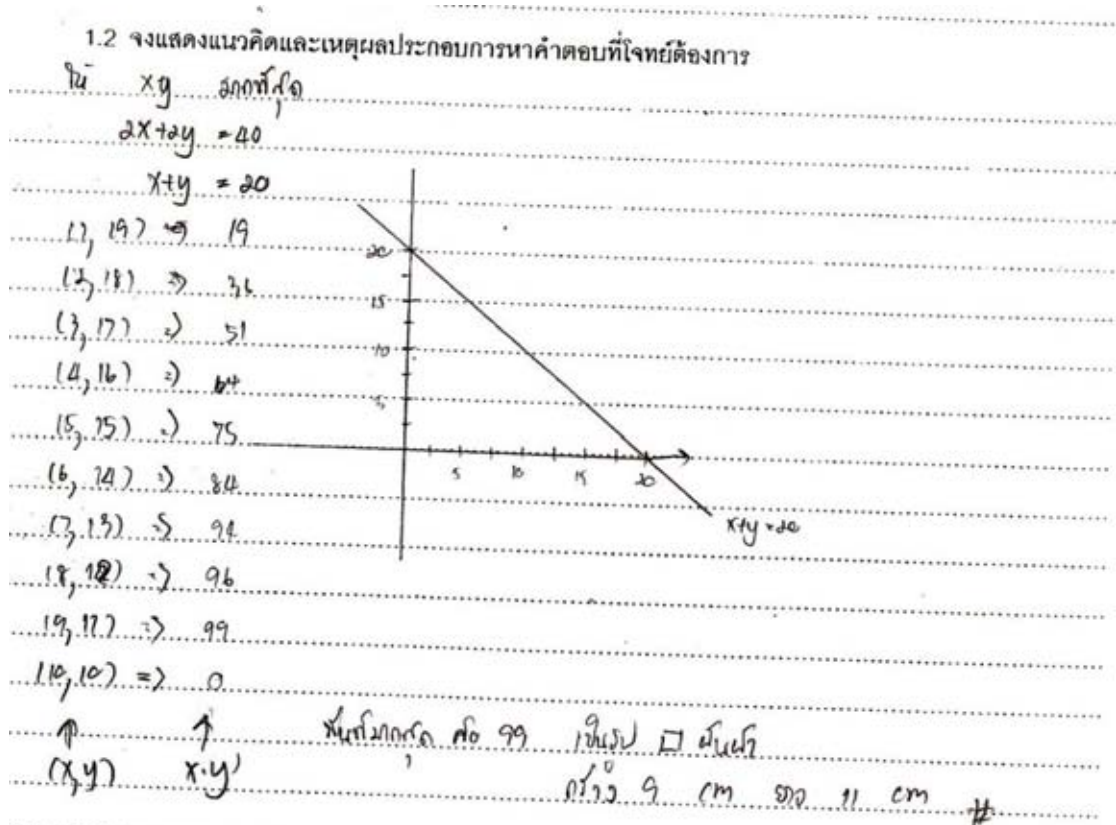 1.2 จงแสดงแนวคิดและเหตุผลประกอบการหาคำตอบที่โจทย์ต้องการ
ให้ xy มากที่สุด
2x+2y = 40
x+y = 20
(1, 19) => 19
(2, 18) => 36
(3, 17) => 51
(4, 16) => 64
(5, 15) => 75
(6, 14) => 84
(7, 13) => 94
(8, 12) => 96
(9, 11) => 99
(10, 10) => 0
(x,y) x·y
20
15
10
5
5 10 15 20
x+y=20
พื้นที่มากที่สุด คือ 99 เป็นรูป □ ผืนผ้า
กว้าง 9 cm ยาว 11 cm #